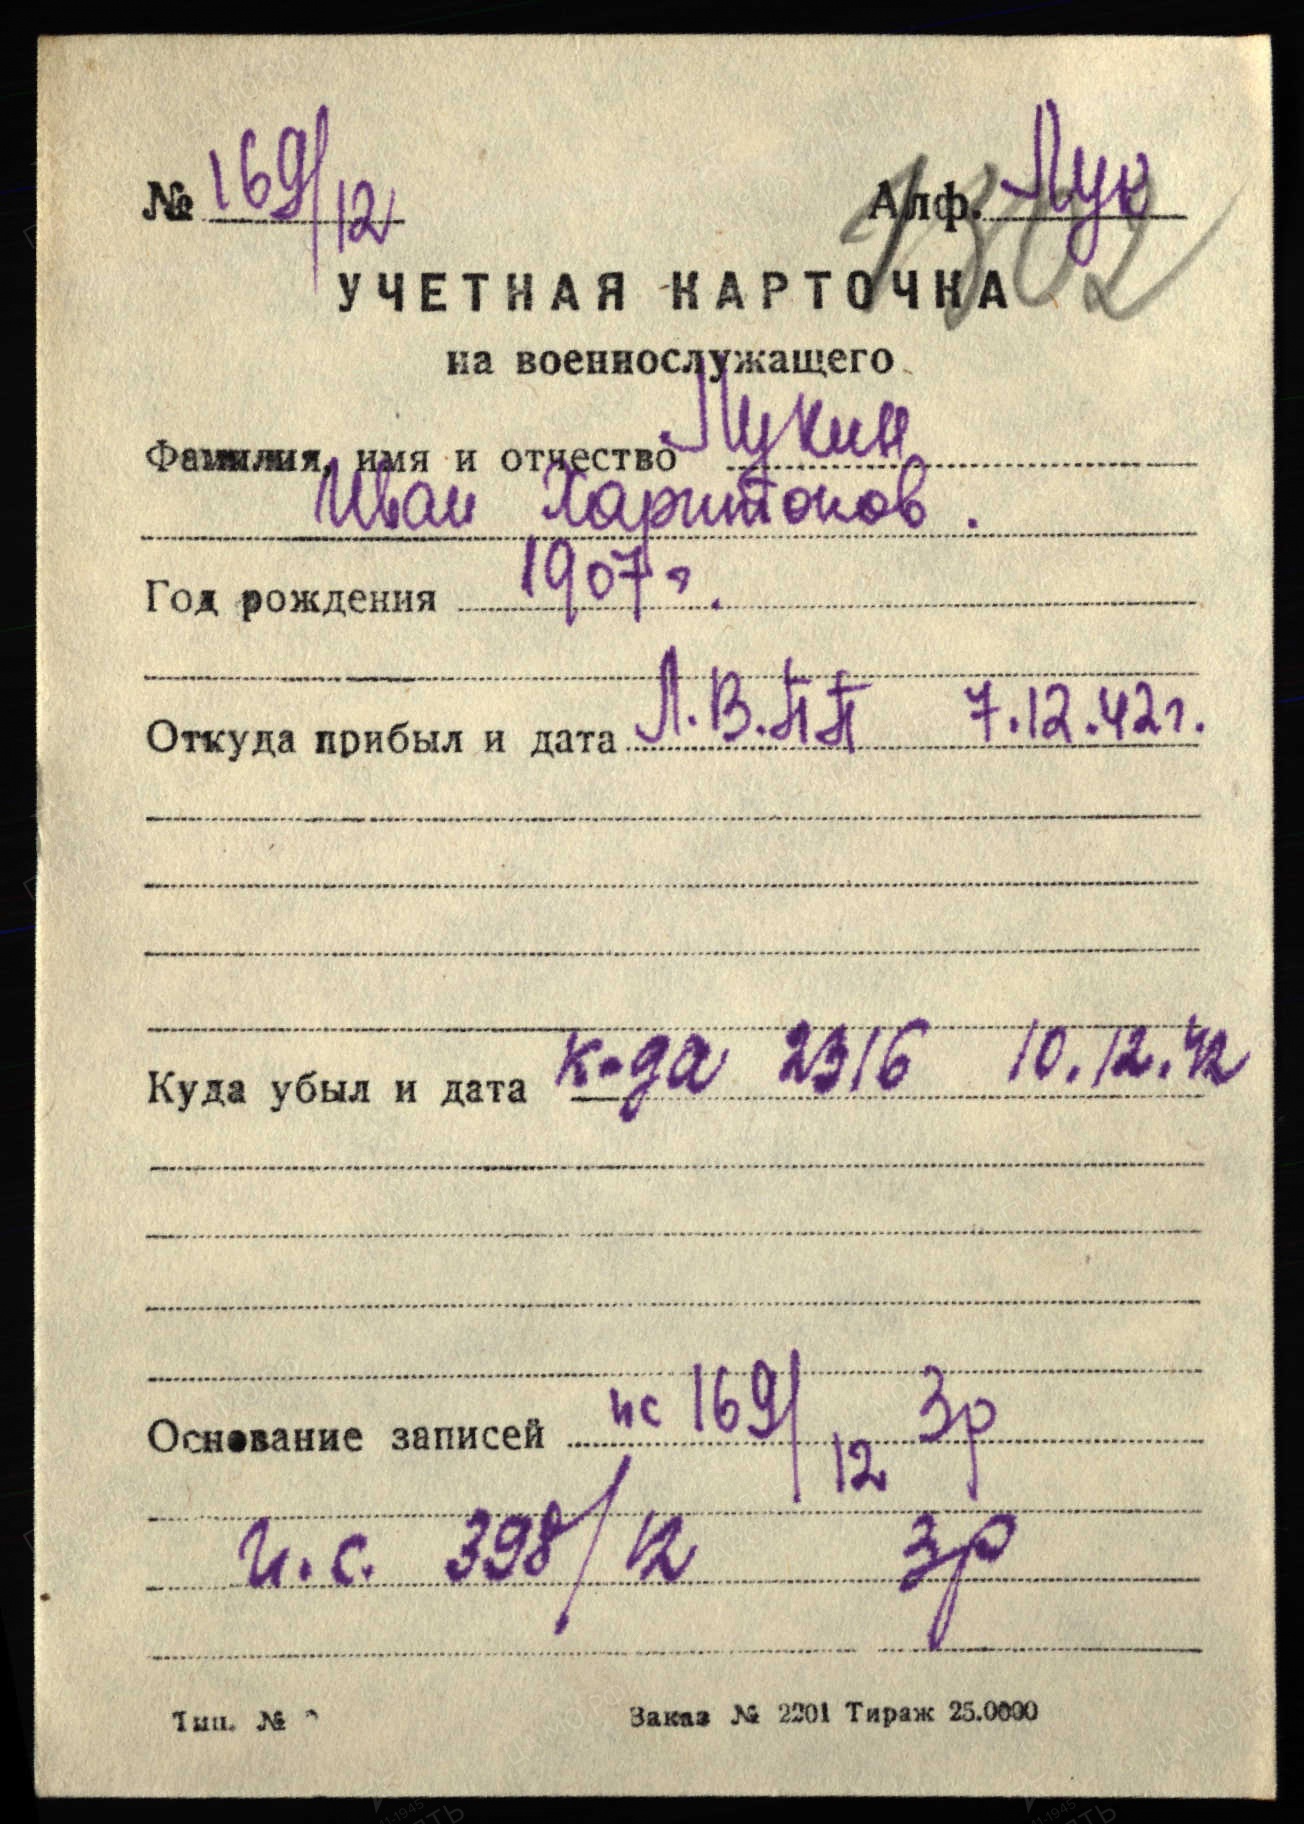 № 169/12 Алф. Лук
7302
УЧЕТНАЯ КАРТОЧКА
на военнослужащего
Фамилия, имя и отчество Лукин
Иван Харитонов.
Год рождения 1907 г.
Откуда прибыл и дата Л.В.ПП 7.12.42г.
Куда убыл и дата к-да 2316 10.12.42
Основание записей ис 169/12 Зр
и.с. 398/12 Зр
Тип. №
Заказ № 2201 Тираж 25.0000